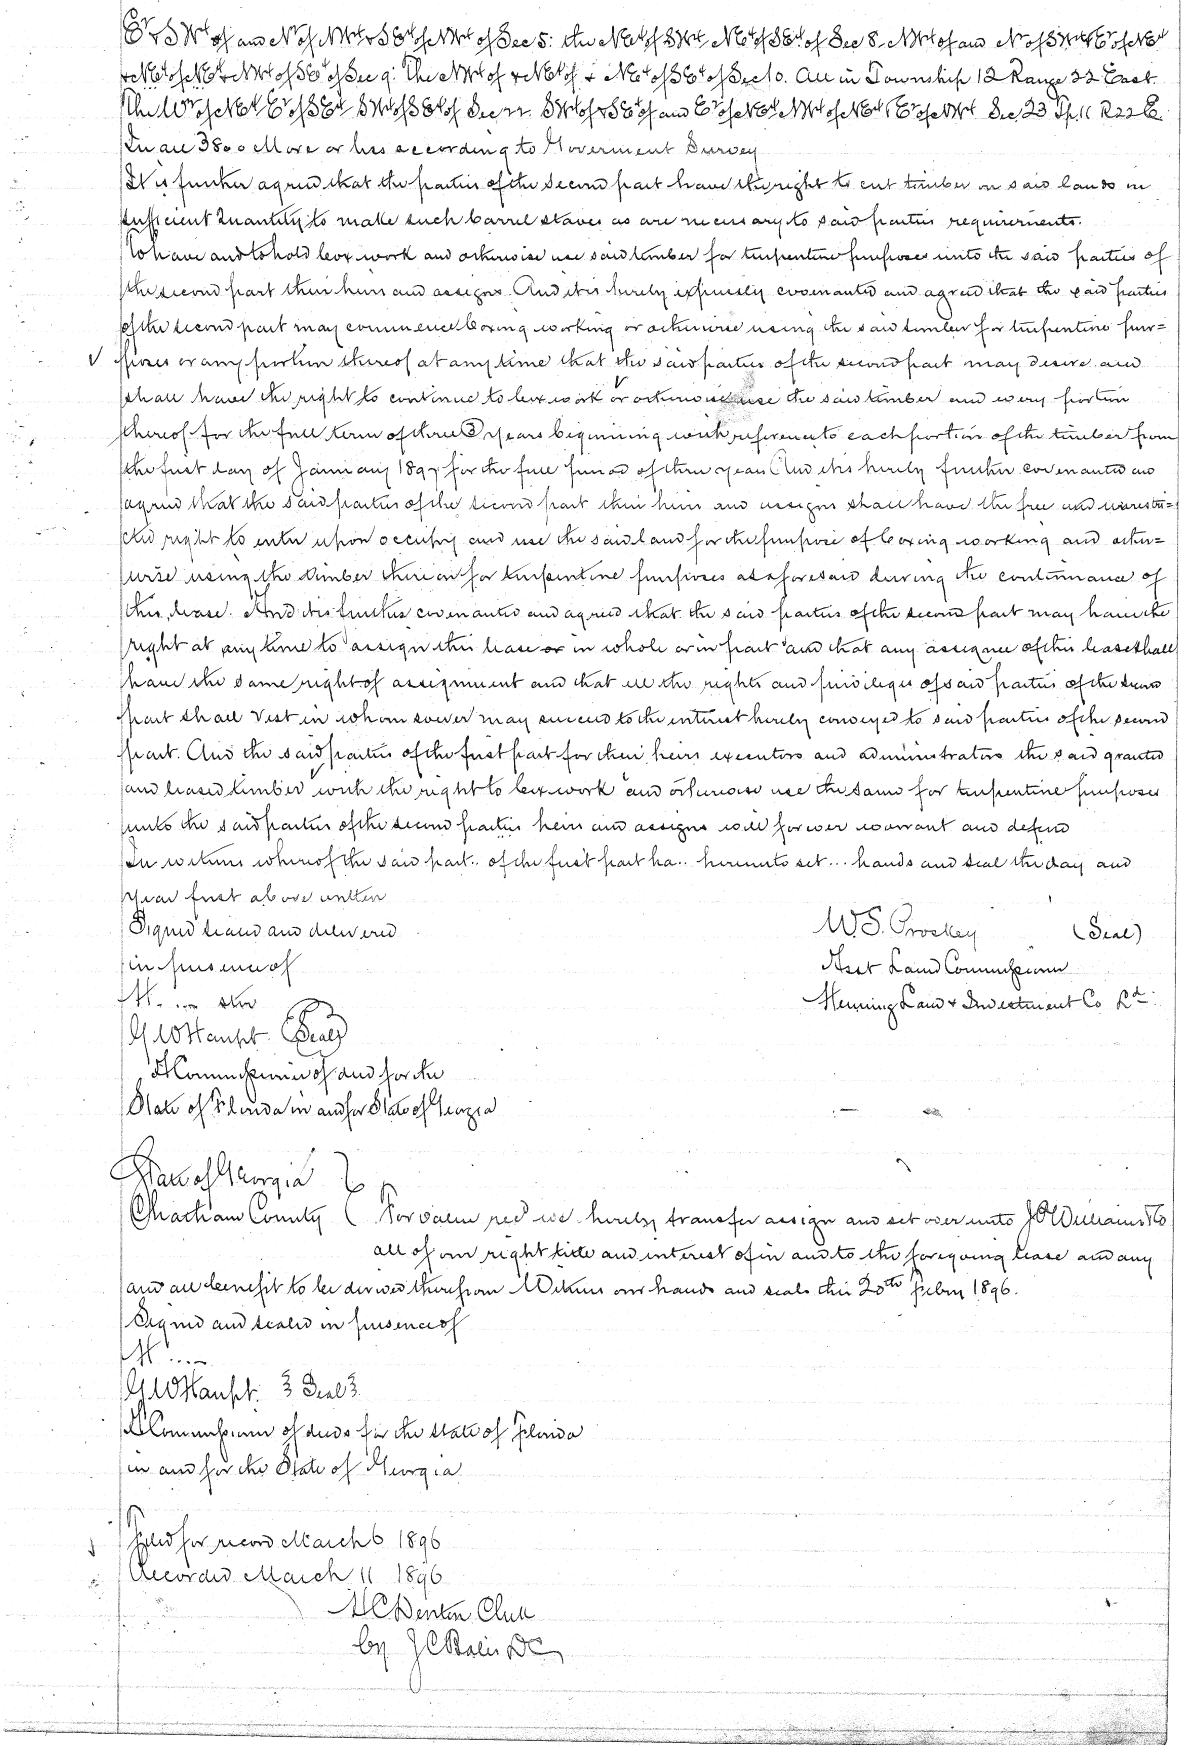 E½ & SW¼ of and N½ of NW¼ & SE¼ of NW¼ of Sec 5: the NE¼ of SW¼ NE¼ of SE¼ of Sec 8. NW¼ of and N½ of SW¼ & E½ of NE¼
& NE¼ of NE¼ & NW¼ of SE¼ of Sec 9: The NW¼ of & NE¼ of & NE¼ of SE¼ of Sec 10. All in Township 12 Range 22 East.
The W½ of NE¼ E½ of SE¼ SW¼ of SE¼ of Sec 22. SW¼ of & SE¼ of and E½ of NE¼ NW¼ of NE¼ & E½ of NW¼ Sec 23 Tp. 11 R 22 E.
In all 3800 More or less according to Goverment Survey
It is further agreed that the parties of the second part have the right to cut timber on said lands in
sufficient Quantity to make such barrel staves as are necessary to said parties requirements.
To have and to hold box work and otherwise use said timber for turpentine purposes unto the said parties of
the second part their heirs and assigns. And it is hereby expressly covenanted and agreed that the said parties
of the second part may commence boxing working or otherwise using the said timber for turpentine pur=
poses or any portion thereof at any time that the said parties of the second part may desire and
shall have the right to continue to box work or otherwise use the said timber and every portion
thereof for the full term of three (3) years beginning with reference to each portion of the timber from
the first day of January 1897 for the full period of three years And it is hereby further covenanted and
agreed that the said parties of the second part their heirs and assigns shall have the free and unrestri=
cted right to enter upon occupy and use the said land for the purpose of boxing working and other=
wise using the timber thereon for turpentine purposes as aforesaid during the continuance of
this lease. And it is further covenanted and agreed that the said parties of the second part may have the
right at any time to assign this lease or in whole or in part and that any assignee of this lease shall
have the same right of assignment and that all the rights and privileges of said parties of the second
part shall vest in whom soever may succeed to the interest hereby conveyed to said parties of the second
part. And the said parties of the first part for their heirs executors and administrators the said granted
and leased timber with the right to box work and otherwise use the same for turpentine purposes
unto the said parties of the second parties heirs and assigns will forever warrant and defend
In witness whereof the said part.. of the first part ha.. hereunto set... hands and seal the day and
year first above written
Signed sealed and delivered
in presence of
W. S. Proskey (Seal)
Asst Land Commissioner
Henning Land & Investment Co Ld.
H. ...
G W Haupt (Seal)
A Commissioner of deed for the
State of Florida in and for State of Georgia
State of Georgia
Chatham County For value recd we hereby transfer assign and set over unto J P Williams & Co
all of our right title and interest of in and to the foregoing lease and any
and all benefit to be derived therefrom Witness our hands and seals this 20th Febry 1896.
Signed and sealed in presence of
H ....
G W Haupt. Seal
A Commissioner of deeds for the state of Florida
in and for the State of Georgia
Filed for record March 6 1896
Recorded March 11 1896
H C Denton Clerk
by J C DC